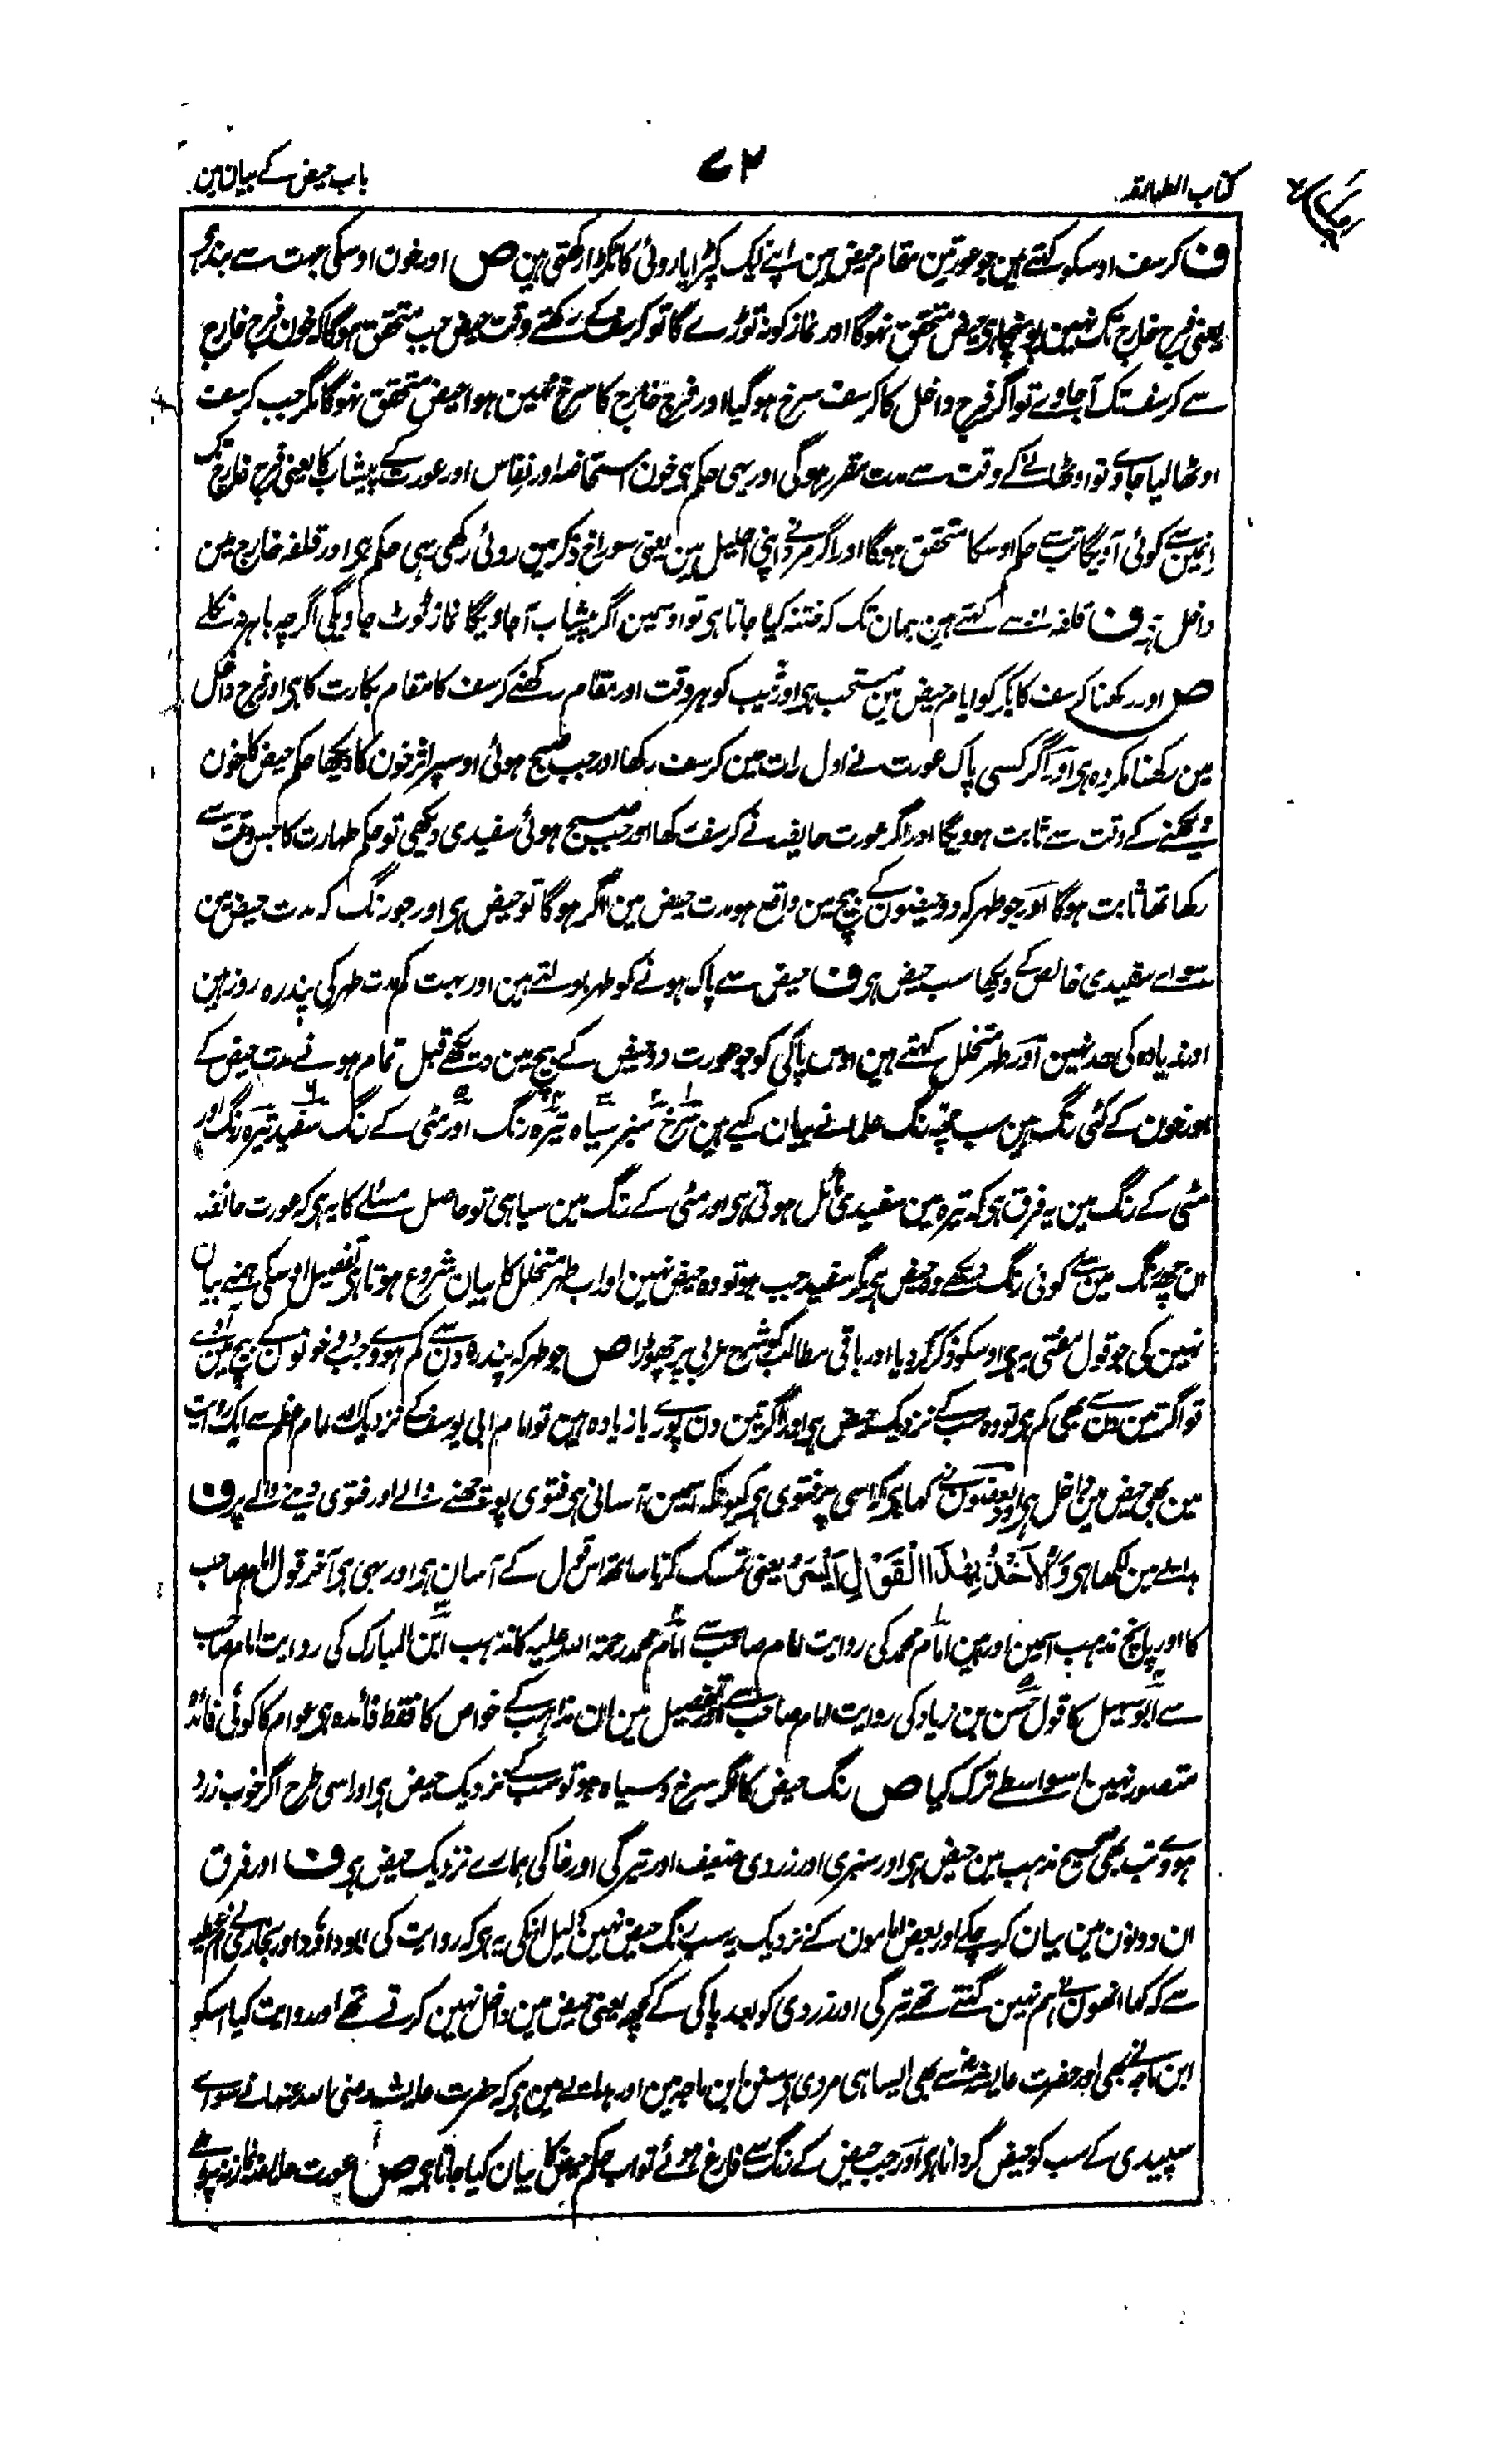 کتاب الطہارۃ
۷۲
باب حیض کے بیان مین
ف کرسف اوسکو کہتے ہین جو عورتین مقام حیض مین اپنے ایک کپڑا یا روئی کا ٹکڑا رکھتی ہین ص اور خون اوسکی جہت سے بند ہو
یعنی فرج خارج تک نہین پہونچا ہی حیض متحقق نہوگا اور نماز کو نہ توڑے گا تو کرسف کے رکھتے وقت حیض جب متحقق ہوگا کہ خون فرج خارج
سے کرسف تک آجاوے تو اگر فرج داخل کا کرسف سرخ ہوگیا اور فرج خارج کا سرخ نہین ہوا حیض متحقق نہوگا مگر جب کرسف
اوٹھا لیا جاوے تو اوٹھانے کے وقت سے مدت مقرر ہوگی اور یہی حکم ہی خون استحاضہ اور نفاس اور عورت کے پیشاب کا یعنی فرج خارج تک
انمین سے کوئی آویگا تب سے حکم اوسکا متحقق ہوگا اور اگر مرد نے اپنی احلیل مین یعنی سوراخ ذکر مین روئی رکھی یہی حکم ہی اور قلفہ خارج مین
داخل ہی ف قلفہ اسے کہتے ہین جہان تک کہ ختنہ کیا جاتا ہی تو اوسمین اگر پیشاب آجاویگا نماز ٹوٹ جاویگی اگرچہ باہر نہ نکلے
ص اور رکھنا کرسف کا بکر کو ایام حیض مین مستحب ہی اور ثیب کو ہر وقت اور مقام رکھنے کرسف کا مقام بکارت کا ہی اور فرج داخل
مین رکھنا مکروہ ہی اور اگر کسی پاک عورت نے اول رات مین کرسف رکھا اور جب صبح ہوئی اوسپر اثر خون کا دیکھا حکم حیض کا خون
دیکھنے کے وقت سے ثابت ہوویگا اور اگر عورت حایضہ نے کرسف رکھا اور جب صبح ہوئی سفیدی دیکھی تو حکم طہارت کا جس وقت سے
رکھا تھا ثابت ہوگا اور جو طہر کہ دو حیضون کے بیچ مین واقع ہو مدت حیض مین اگر ہوگا تو حیض ہی اور جو رنگ کہ مدت حیض مین
سواے سفیدی خالص کے دیکھا سب حیض ہی ف حیض سے پاک ہونے کو طہر بولتے ہین اور بہت کم مدت طہر کی پندرہ روز ہین
اور زیادہ کی حد نہین اور طہر متخلل کہتے ہین اوس پاکی کو جو عورت دو حیض کے بیچ مین دیکھے قبل تمام ہونے مدت حیض کے
اور خون کے کئی رنگ ہین سب چھ رنگ علما نے بیان کیے ہین سرخ سبز سیاہ تیرہ رنگ اور مٹی کے رنگ سفید تیرہ رنگ اور
مٹی کے رنگ مین یہ فرق ہی کہ تیرہ مین سفیدی مائل ہوتی ہی اور مٹی کے رنگ مین سیاہی تو حاصل مسئلے کا یہ ہی کہ عورت حائضہ
ان چھ رنگ مین سے کوئی رنگ دیکھے وہ حیض ہی مگر سفید جب ہو تو وہ حیض نہین اور اب طہر متخلل کا بیان شروع ہوتا ہی تفصیل اوسکی ہمنے بیان
نہین کی جو قول مفتی بہ ہی اوسکو ذکر کر دیا اور باقی مطالب کو شرح عربی پر چھوڑا ص جو طہر کہ پندرہ دن سے کم ہووے جب دو خونون کے بیچ مین آوے
تو اگر تین دن سے بھی کم ہی تو وہ سب کے نزدیک حیض ہی اور اگر تین دن پورے یا زیادہ ہین تو امام ابی یوسف کے نزدیک اور امام اعظم سے ایک روایت
مین بھی حیض مین داخل ہی اور بعضون نے کہا ہی کہ اسی پر فتوی ہی کیونکہ اسمین آسانی ہی فتوی پوچھنے والے اور فتوی دینے والے پر ف
ہدایے مین لکھا ہی وَالْاَخْذُ بِهٰذَا الْقَوْلِ اَيْسَرُ یعنی تمسک کرنا ساتھ اس قول کے آسان ہی اور یہی ہی آخر قول امام صاحب
کا اور پانچ مذہب اسمین اور ہین امام محمد کی روایت امام صاحب سے امام محمد رحمۃ اللہ علیہ کا مذہب ابن المبارک کی روایت امام صاحب
سے ابو سہیل کا قول حسن بن زیاد کی روایت امام صاحب سے اور تفصیل مین ان مذاہب کے خواص کا فقط فائدہ ہی عوام کا کوئی فائدہ
متصور نہین اسواسطے ترک کیا ص رنگ حیض کا اگر سرخ و سیاہ ہو تو سب کے نزدیک حیض ہی اور اسی طرح اگر خوب زرد
ہووے تب بھی صحیح مذہب مین حیض ہی اور سبزی اور زردی ضعیف اور تیرگی اور خاکی ہمارے نزدیک حیض ہی ف اور فرق
ان دونون مین بیان کر چکے اور بعض امامون کے نزدیک یہ سب رنگ حیض نہین دلیل انکی یہ ہی کہ روایت کی ابو داؤد اور بخاری نے ام عطیہ
سے کہ کہا انھون نے ہم نہین گنتے تھے تیرگی اور زردی کو بعد پاکی کے کچھ یعنی حیض مین داخل نہین کرتے تھے اور روایت کیا اسکو
ابن ماجہ نے بھی اور حضرت عایشہ سے بھی ایسا ہی مروی ہی سنن ابن ماجہ مین اور ہدایے مین ہی کہ حضرت عایشہ رضی اللہ عنہا نے سواے
سپیدی کے سب کو حیض گردانا ہی اور جب حیض کے رنگ سے فارغ ہوئے تو اب حکم حیض کا بیان کیا جاتا ہی ص عورت حائضہ نماز نہ پڑھے